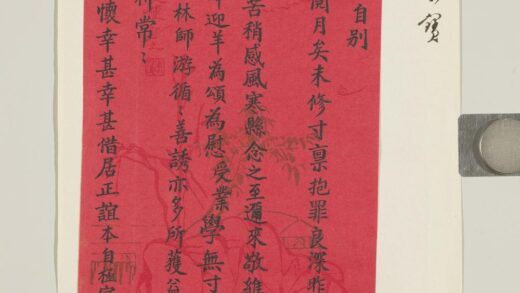 寶
自别
閱月矣未修寸稟抱罪良深昨
苦稍感風寒縣念之至邇來敬維
迎羊為頌為慰受業學無寸
林師游循〻善誘亦多所獲益
常〻
懷幸甚幸甚偕居正誼本自極